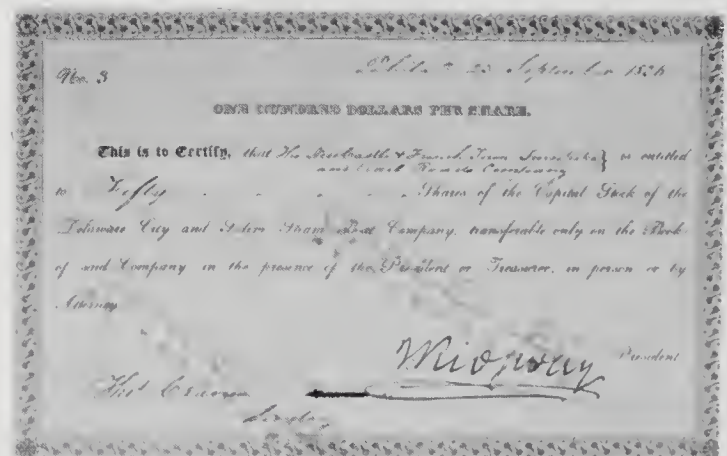 No. 3
Philad 23 September 1836
ONE HUNDRED DOLLARS PER SHARE.
This is to Certify, that The NewCastle & French Town Turnpike } is entitled
and Rail Road Company
to Fifty Shares of the Capital Stock of the
Delaware City and Salem Steam Boat Company, transferable only on the Book
of said Company in the presence of the President or Treasurer, in person or by
Attorney
President